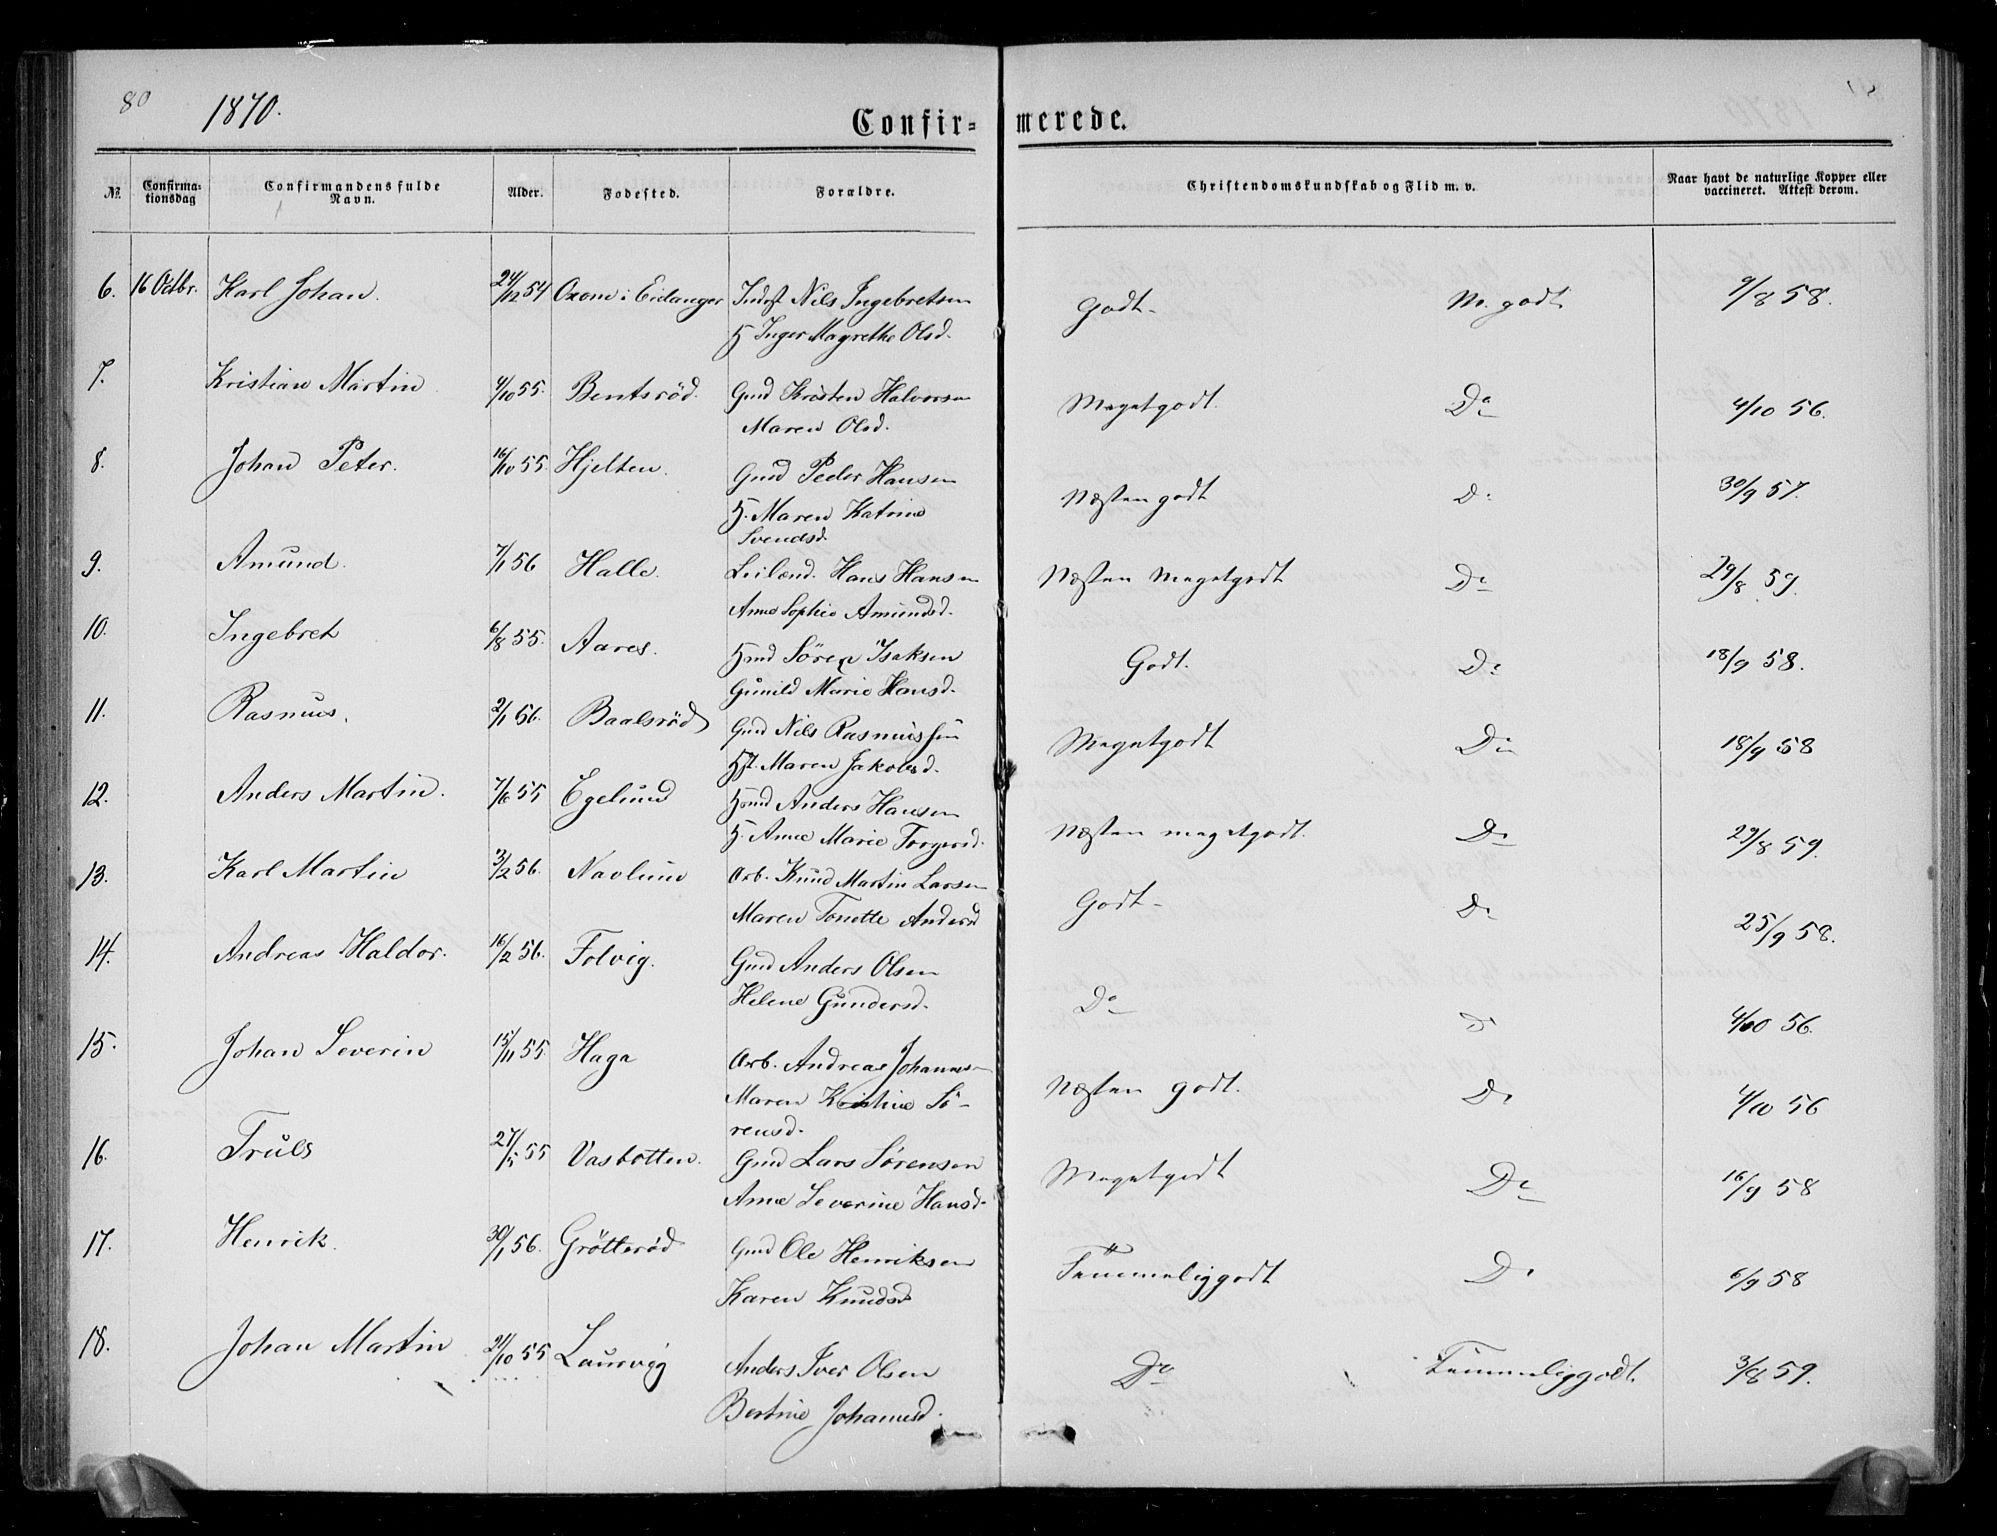 80 1870.
Confir- merede.
№. Confirma-tionsdag Confirmandens fulde Navn. Alder. Fødested. Forældre. Christendomskundskab og Flid m. v. Naar havt de naturlige Kopper eller vaccineret. Attest derom.
6. 16 Octbr. Karl Johan. 24/12 54 Oxom i Eidanger Indst Nils Ingebretsen Godt- M. godt 9/8 58.
H Inger Magrethe Olsd.
7. Kristian Martin 4/10 55. Bentsröd. Gmd Kristen Halvorsen Megetgodt. Do 4/10 56.
Maren Olsd.
8. Johan Peter. 16/10 55. Hjelten. Gmd Peder Hansen Næsten godt Do 30/9 57.
H. Maren Katrine
Svendsd.
9. Amund. 7/1 56 Halle. Leilænd. Hans Hansen Næsten Megetgodt Do 29/8 59.
Anne Sophie Amundsd.
10. Ingebret 6/8 55. Aares. Hmd Sören Isaksen Godt. Do 18/9 58.
Gunild Marie Hansd.
11. Rasmus. 2/1 56. Baalsröd Gmd Nils Rasmussen Megetgodt Do 18/9 58
Hst. Maren Jakobsd.
12. Anders Martin. 7/6 55 Egelund Hmd Anders Hansen Næsten megetgodt. Do 29/8 59.
H. Anne Marie Torgersd.
13. Karl Martin 3/2 56. Navlund Arb. Knud Martin Larsen Godt- Do 25/9 58.
Maren Tonette Andersd
14. Andreas Haldor. 16/2 56. Tolvig. Gmd Anders Olsen Do Do 4/10 56.
Helene Gundersd.
15. Johan Severin 15/11 55 Haga Arb. Andreas Johannesn Næsten godt. Do 4/10 56
Maren Kristine Sö-
rensd.
16. Truls 27/5 55 Vasbotten. Gmd Lars Sörensen Megetgodt Do 16/9 58
Anne Severine Hansd.
17. Henrik. 30/1 56. Grötteröd Gmd Ole Henriksen Temmeliggodt Do 6/9 58
Karen Knudsd
18. Johan Martin 21/10 55 Laurvig Anders Iver Olsen Do Temmeliggodt. 3/8 59.
Bertine Johannesd.